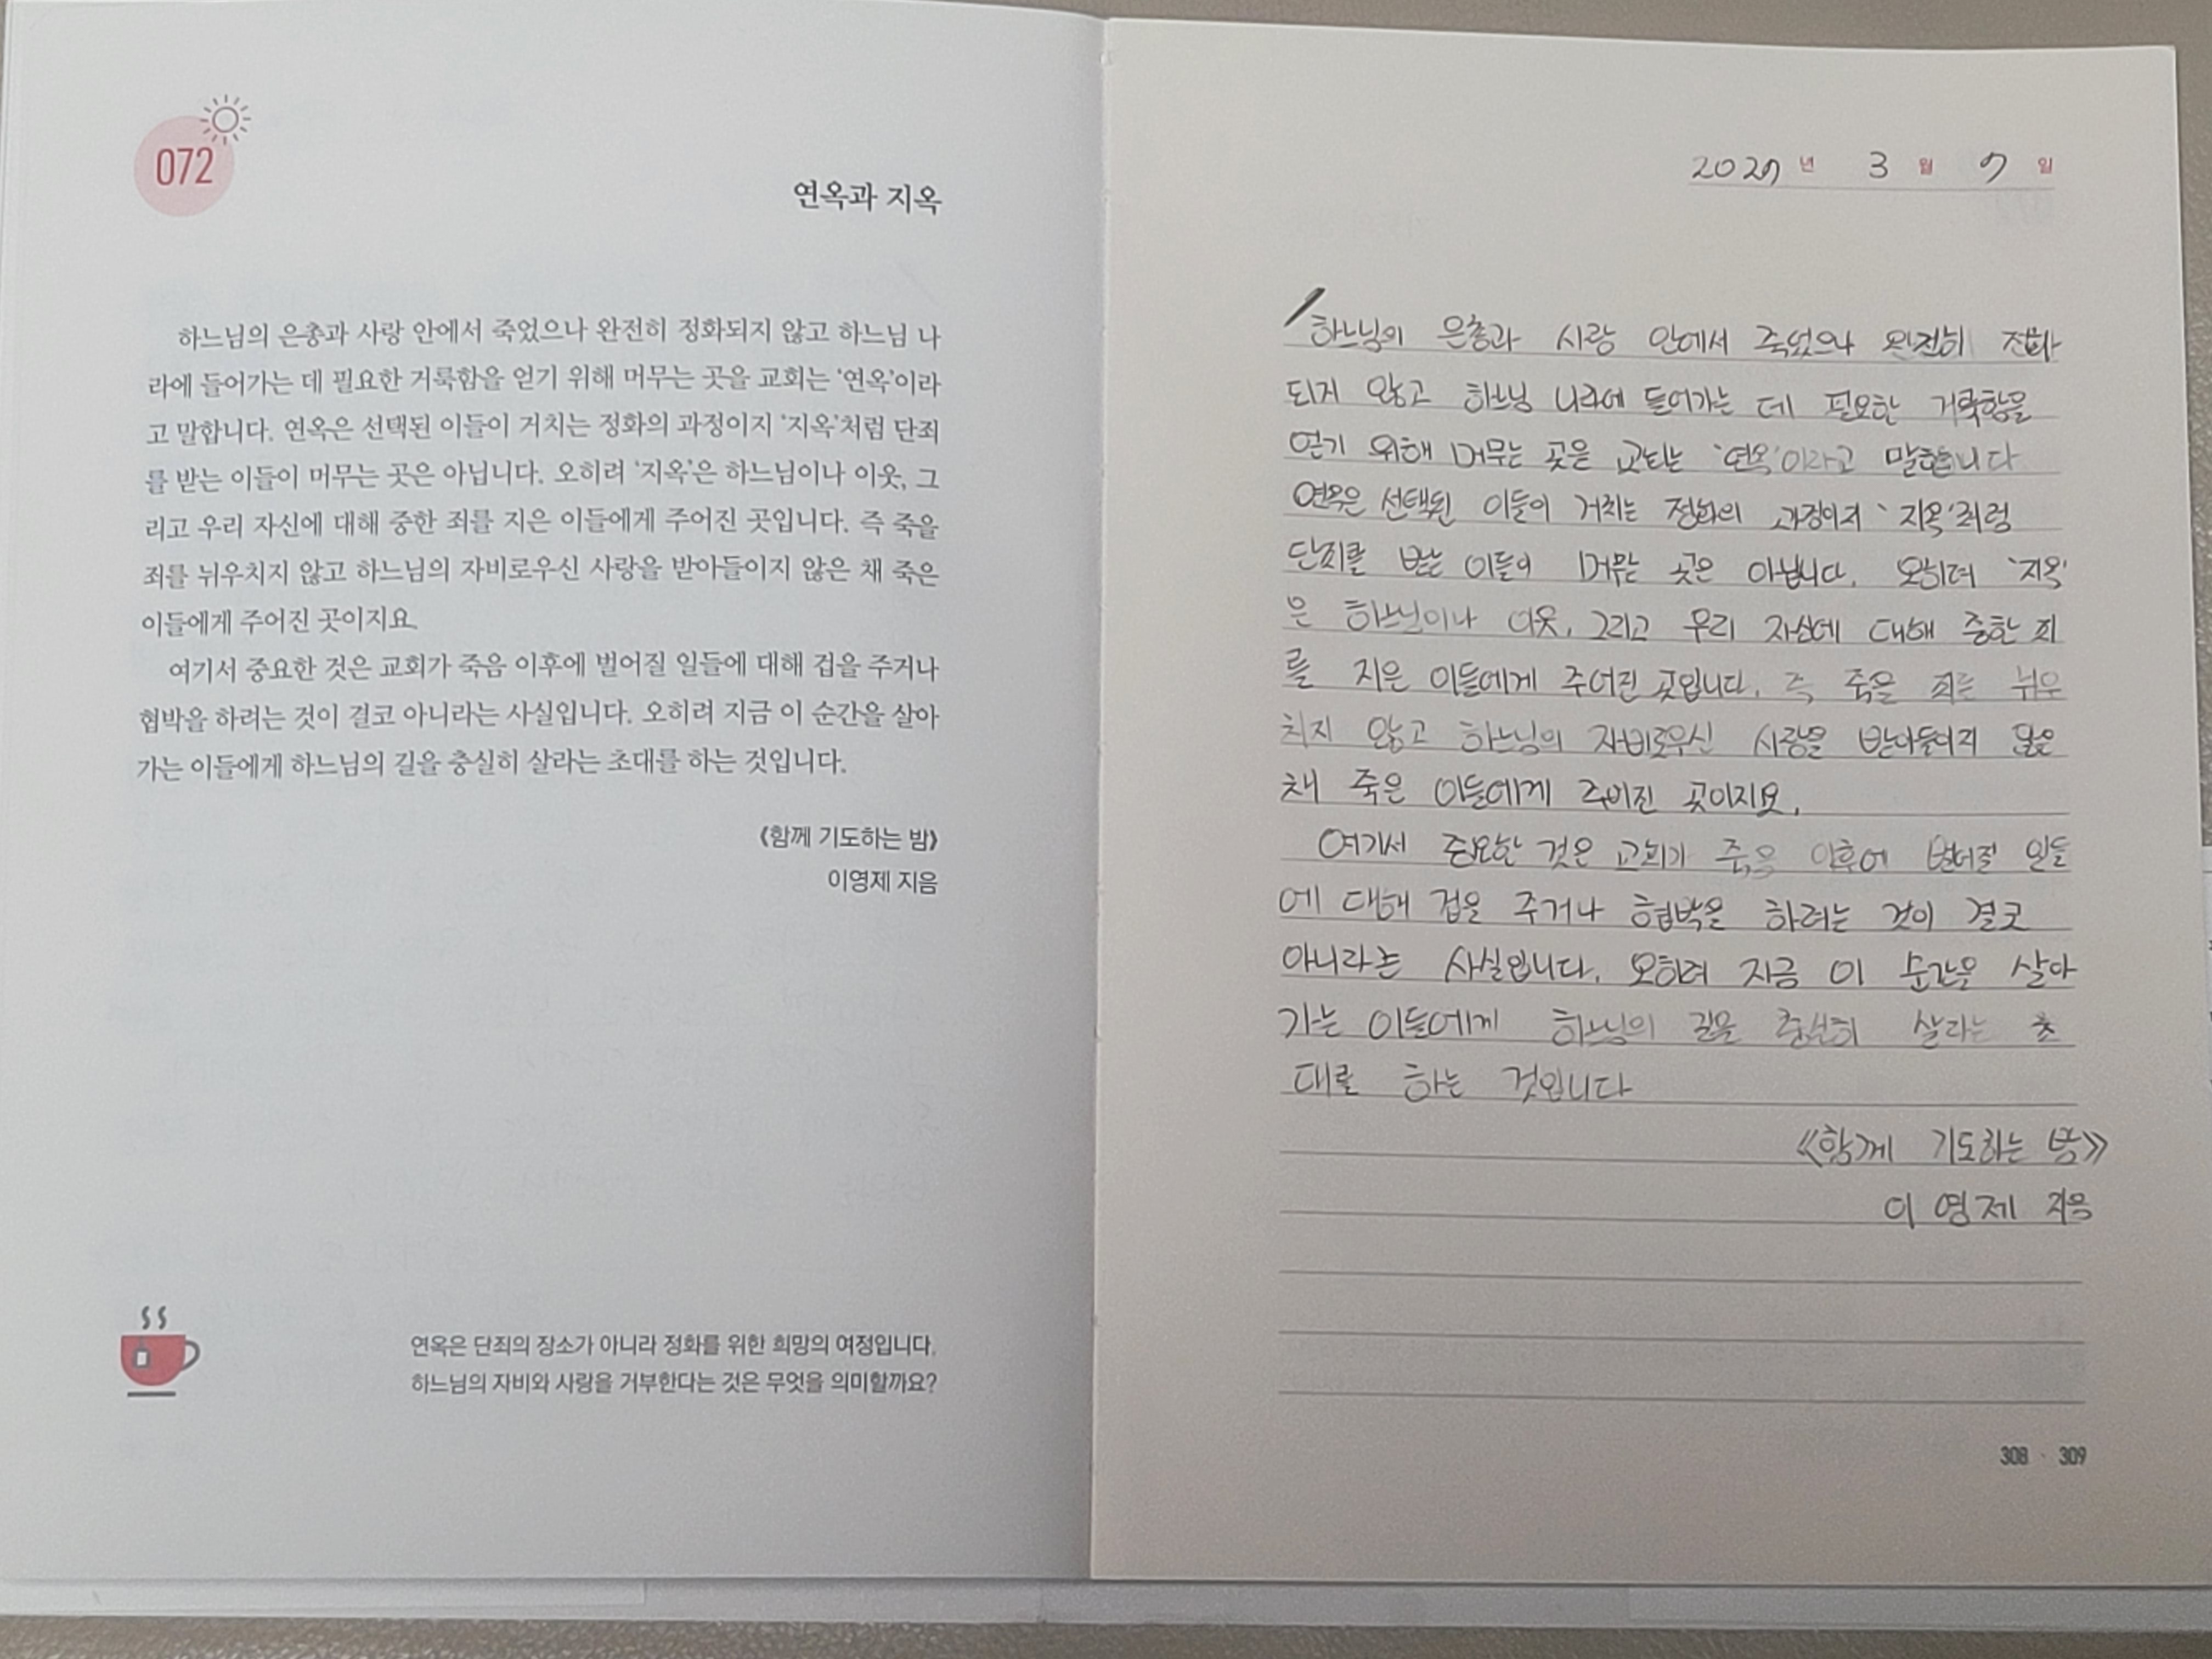 072
연옥과 지옥
하느님의 은총과 사랑 안에서 죽었으나 완전히 정화되지 않고 하느님 나
라에 들어가는 데 필요한 거룩함을 얻기 위해 머무는 곳을 교회는 ‘연옥’이라
고 말합니다. 연옥은 선택된 이들이 거치는 정화의 과정이지 ‘지옥’처럼 단죄
를 받는 이들이 머무는 곳은 아닙니다. 오히려 ‘지옥’은 하느님이나 이웃, 그
리고 우리 자신에 대해 중한 죄를 지은 이들에게 주어진 곳입니다. 즉 죽을
죄를 뉘우치지 않고 하느님의 자비로우신 사랑을 받아들이지 않은 채 죽은
이들에게 주어진 곳이지요.
여기서 중요한 것은 교회가 죽음 이후에 벌어질 일들에 대해 겁을 주거나
협박을 하려는 것이 결코 아니라는 사실입니다. 오히려 지금 이 순간을 살아
가는 이들에게 하느님의 길을 충실히 살라는 초대를 하는 것입니다.
《함께 기도하는 밤》
이영제 지음
연옥은 단죄의 장소가 아니라 정화를 위한 희망의 여정입니다.
하느님의 자비와 사랑을 거부한다는 것은 무엇을 의미할까요?
년 3월 7일
하느님의 은총과 사랑 안에서 죽었으나 완전히 정화
되지 않고 하느님 나라에 들어가는 데 필요한 거룩함을
얻기 위해 머무는 곳을 교회는 ‘연옥’이라고 말합니다
연옥은 선택된 이들이 거치는 정화의 과정이지 ‘지옥’처럼
단죄를 받는 이들이 머무는 곳은 아닙니다. 오히려 ‘지옥’
은 하느님이나 이웃, 그리고 우리 자신에 대해 중한 죄
를 지은 이들에게 주어진 곳입니다. 즉 죽을 죄를 뉘우
치지 않고 하느님의 자비로우신 사랑을 받아들이지 않은
채 죽은 이들에게 주어진 곳이지요.
여기서 중요한 것은 교회가 죽음 이후에 벌어질 일들
에 대해 겁을 주거나 협박을 하려는 것이 결코
아니라는 사실입니다. 오히려 지금 이 순간을 살아
가는 이들에게 하느님의 길을 충실히 살라는 초
대를 하는 것입니다
《함께 기도하는 밤》
이영제 지음
308 · 309